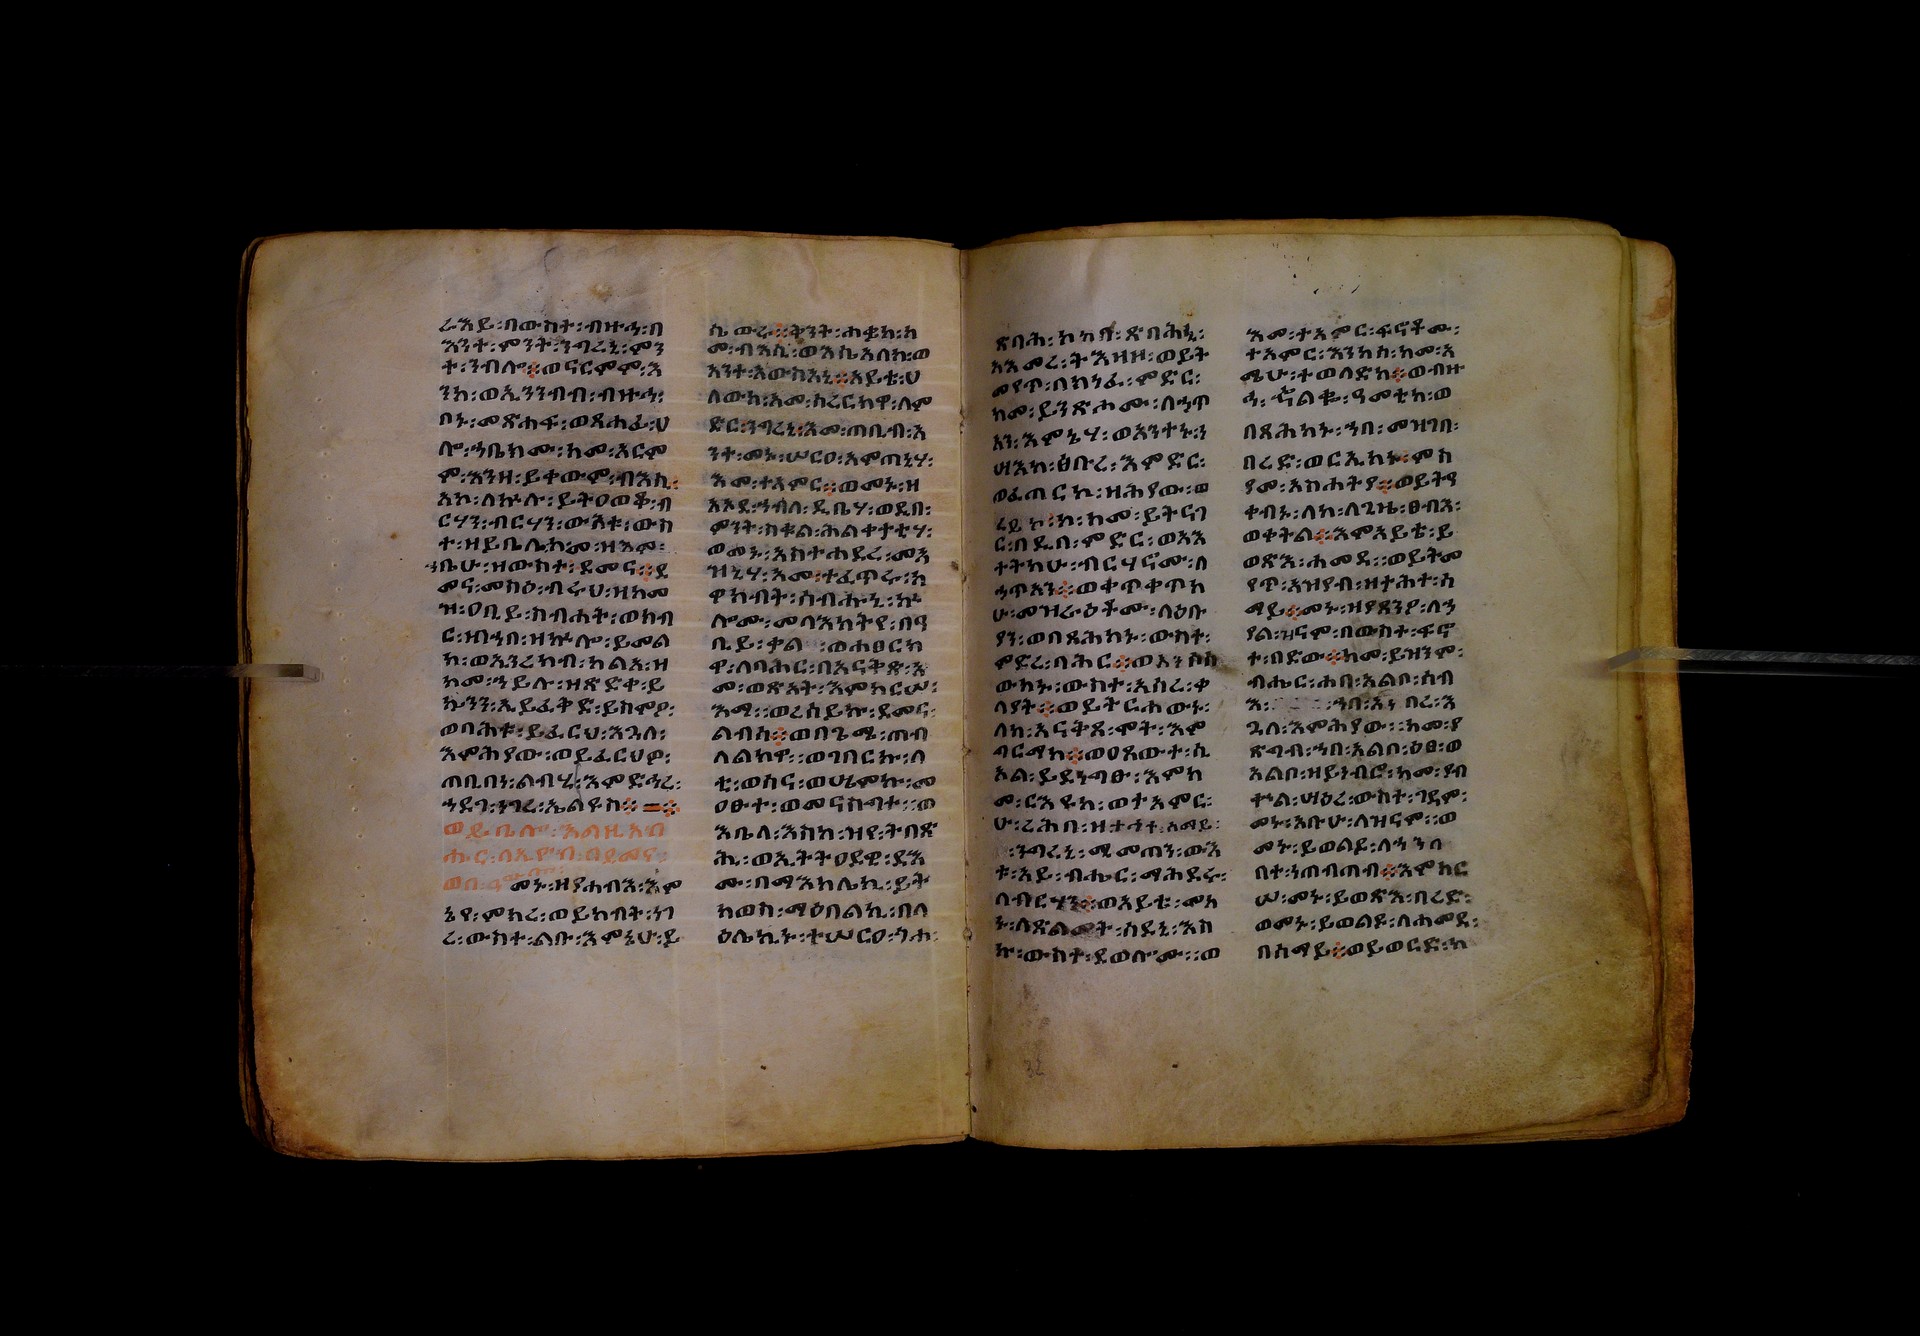 ሬእይ፡በውስተ፡ብዙኃ፡በ
እንተ፡ምንት፡ንግረኒ፡ምን
ት፡ንብሎ፡፡ወናርምም፡እ
ንከ፡ወኢንንብብ፡ብዙኃ፡
በኑ፡መጽሐፍ፡ወጸሐፊ፡ሀ
ሎ፡ኀቤከሙ፡ከመ፡አርም
ም፡እንዘ፡ይቀውም፡ብእሲ፡
አኮ፡ለኵሉ፡ይትዐወቆ፡ብ
ርሃን፡ብርሃን፡ውእቱ፡ውስ
ተ፡ዘይቤሌከመ፡ዝእሙ፡
ቤሁ፡ዘውስተ፡ደመና፡፡ደ
መና፡መከዕ፡ብሩህ፡ዝከመ
ዝ፡ዐቢይ፡ስብሐት፡ወክብ
ር፡ዘበኀበ፡ዝኵሎ፡ይመል
ክ፡ወእንረከብ፡ካልአ፡ዘ
ከመ፡ኀይሉ፡ዝጽድቀ፡ይ
ኴንን፡ኢይፈቅድ፡ይስምዖ፡
ወባሕቱ፡ይፈርህ፡እጓለ፡
እምሕያው፡ወይፈርህዎ፡
ጠቢባነ፡ልብሂ፡እምድኅረ፡
ኀደገ፡ነገረ፡ኤልዩስ፡፡
ወይቤሎ፡እግዚአብ
ሔር፡ለኢዮብ፡በደመና፡
መኑ፡ዘየሐብእ፡እም
ኔየ፡ምክረ፡ወይከብት፡ነገ
ረ፡ውስተ፡ልቡ፡እምኔሁ፡ይ
ሴወራ፡፡ቅንት፡ሐቌከ፡ከ
መ፡ብእሲ፡ወእሴአለከ፡ወ
አንተ፡አውስአኒ፡፡አይቴ፡ሀ
ለውከ፡አመ፡ሳረርክዋ፡ለም
ድር፡ንግረኒ፡እመ፡ጠቢብ፡አ
ንተ፡መኑ፡ሠርዐ፡አምጣኒሃ፡
እመ፡ተአምር፡፡ወመኑ፡ዘ
አኦደ፡ኀብለ፡ዲቤሃ፡ወዲበ፡
ምንት፡ስቁል፡ሕልቀታቲሃ፡
ወመኑ፡እስተሐደረ፡መእ
ዝኒሃ፡አመ፡ተፈጥሩ፡ከ
ዋክብት፡ሰብሑኒ፡ኵ
ሎሙ፡መላእክትየ፡በዓ
ቢይ፡ቃል፡፡ወሐፀርክ
ዋ፡ለባሕር፡በአናቅጽ፡አ
መ፡ወጽአት፡እምከርሠ፡
እማ፡፡ወረሰይኩ፡ደመና፡
ልብሰ፡፡ወበጊሜ፡ጠብ
ለልክዋ፡፡ወገበርኩ፡ላ
ቲ፡ወሰና፡ወሤምኩ፡መ
ዐፁተ፡ወመናስግተ፡፡ወ
እቤላ፡እስከ፡ዝየ፡ትበጽ
ሒ፡ወኢትትዐደዊ፡ደእ
ሙ፡በማእከሌኪ፡ይት
ከወስ፡ማዕበልኪ፡በላ
ዕሌኪኑ፡ተሠርዐ፡ጎሐ
ጽባሕ፡ኮከበ፡ጽባሕኒ፡
አእመረ፡ትእዛዘ፡ወይት
መየጥ፡በከነፈ፡ምድር፡
ከመ፡ይንጽሖሙ፡ለኃጥ
አን፡እምኔሃ፡ወአንተኑ፡ነ
ሣእከ፡ፅቡረ፡እምድር፡
ወፈጠርከ፡ዘሕያው፡ወ
ረሰይከ፡ከመ፡ይትናገ
ር፡በዲበ፡ምድር፡ወእእ
ተትከሁ፡ብርሃናሙ፡ለ
ኃጥአን፡፡ወቀጥቀጥከ
ሁ፡መዝራዕቶሙ፡ለዕቡ
ያን፡ወበጻሕከኑ፡ውስተ፡
ምድረ፡ባሕር፡፡ወአንሶሰ
ውከኑ፡ውስተ፡አሰረ፡ቀ
ላያት፡፡ወይትርሐውኑ፡
ለከ፡አናቅጸ፡ሞት፡እም
ባርማከ፡፡ወዐጸውተ፡ሲ
ኦል፡ይደነግፁ፡እምከ
መ፡ርእዩከ፡ወተአምር፡
ሁ፡ራሕበ፡ዘታሕተ፡ሰማይ፡
ንግረኒ፡ሚመጠን፡ውእ
ቱ፡አይ፡ብሔር፡ማሕደሩ፡
ለብርሃን፡፡ወአይቴ፡መካ
ኑ፡ለጽልመት፡ስደኒ፡እስ
ኩ፡ውስተ፡ደወሎሙ፡፡ወ
እመ፡ተአምር፡ፍኖቶሙ፡
ተአምር፡እንከሰ፡ከመ፡አ
ሜሁ፡ተወለድከ፡፡ወብዙ
ኃ፡ኆልቈ፡ዓመቲከ፡ወ
በጻሕከኑ፡ኀበ፡መዝገበ፡
በረድ፡ወርኢከኑ፡ምስ
ያመ፡አስሐትያ፡፡ወይትዓ
ቀብኑ፡ለከ፡ለጊዜ፡ፀብእ፡
ወቀትል፡፡እምአይቴ፡ይ
ወጽእ፡ሐመዳ፡፡ወይትመ
የጥ፡አዝየብ፡ዘታሕተ፡ሰ
ማይ፡፡መኑ፡ዘያጸንዖ፡ለኀ
ያል፡ዝናም፡በውስተ፡ፍኖ
ት፡በድው፡፡ከመ፡ይዝንም፡
ብሔር፡ሐበ፡አልቦ፡ሰብ
እ፡ኀበ፡እንበረ፡እ
ጓለ፡እምሕያው፡፡ከመ፡ያ
ጽግብ፡ኀበ፡አልቦ፡ዕፀ፡ወ
አልቦ፡ዘይነብሮ፡ከመ፡ያብ
ቍል፡ሣዕረ፡ውስተ፡ገዳም፡
መኑ፡አቡሁ፡ለዝናም፡፡ወ
መኑ፡ይወልዶ፡ለነጠበ
በተ፡ነጠብጣብ፡፡እምከር
ሠ፡መኑ፡ይወጽእ፡በረድ፡
ወመኑ፡ይወልዶ፡ለሐመዳ፡
በሰማይ፡፡ወይወርድ፡ከ